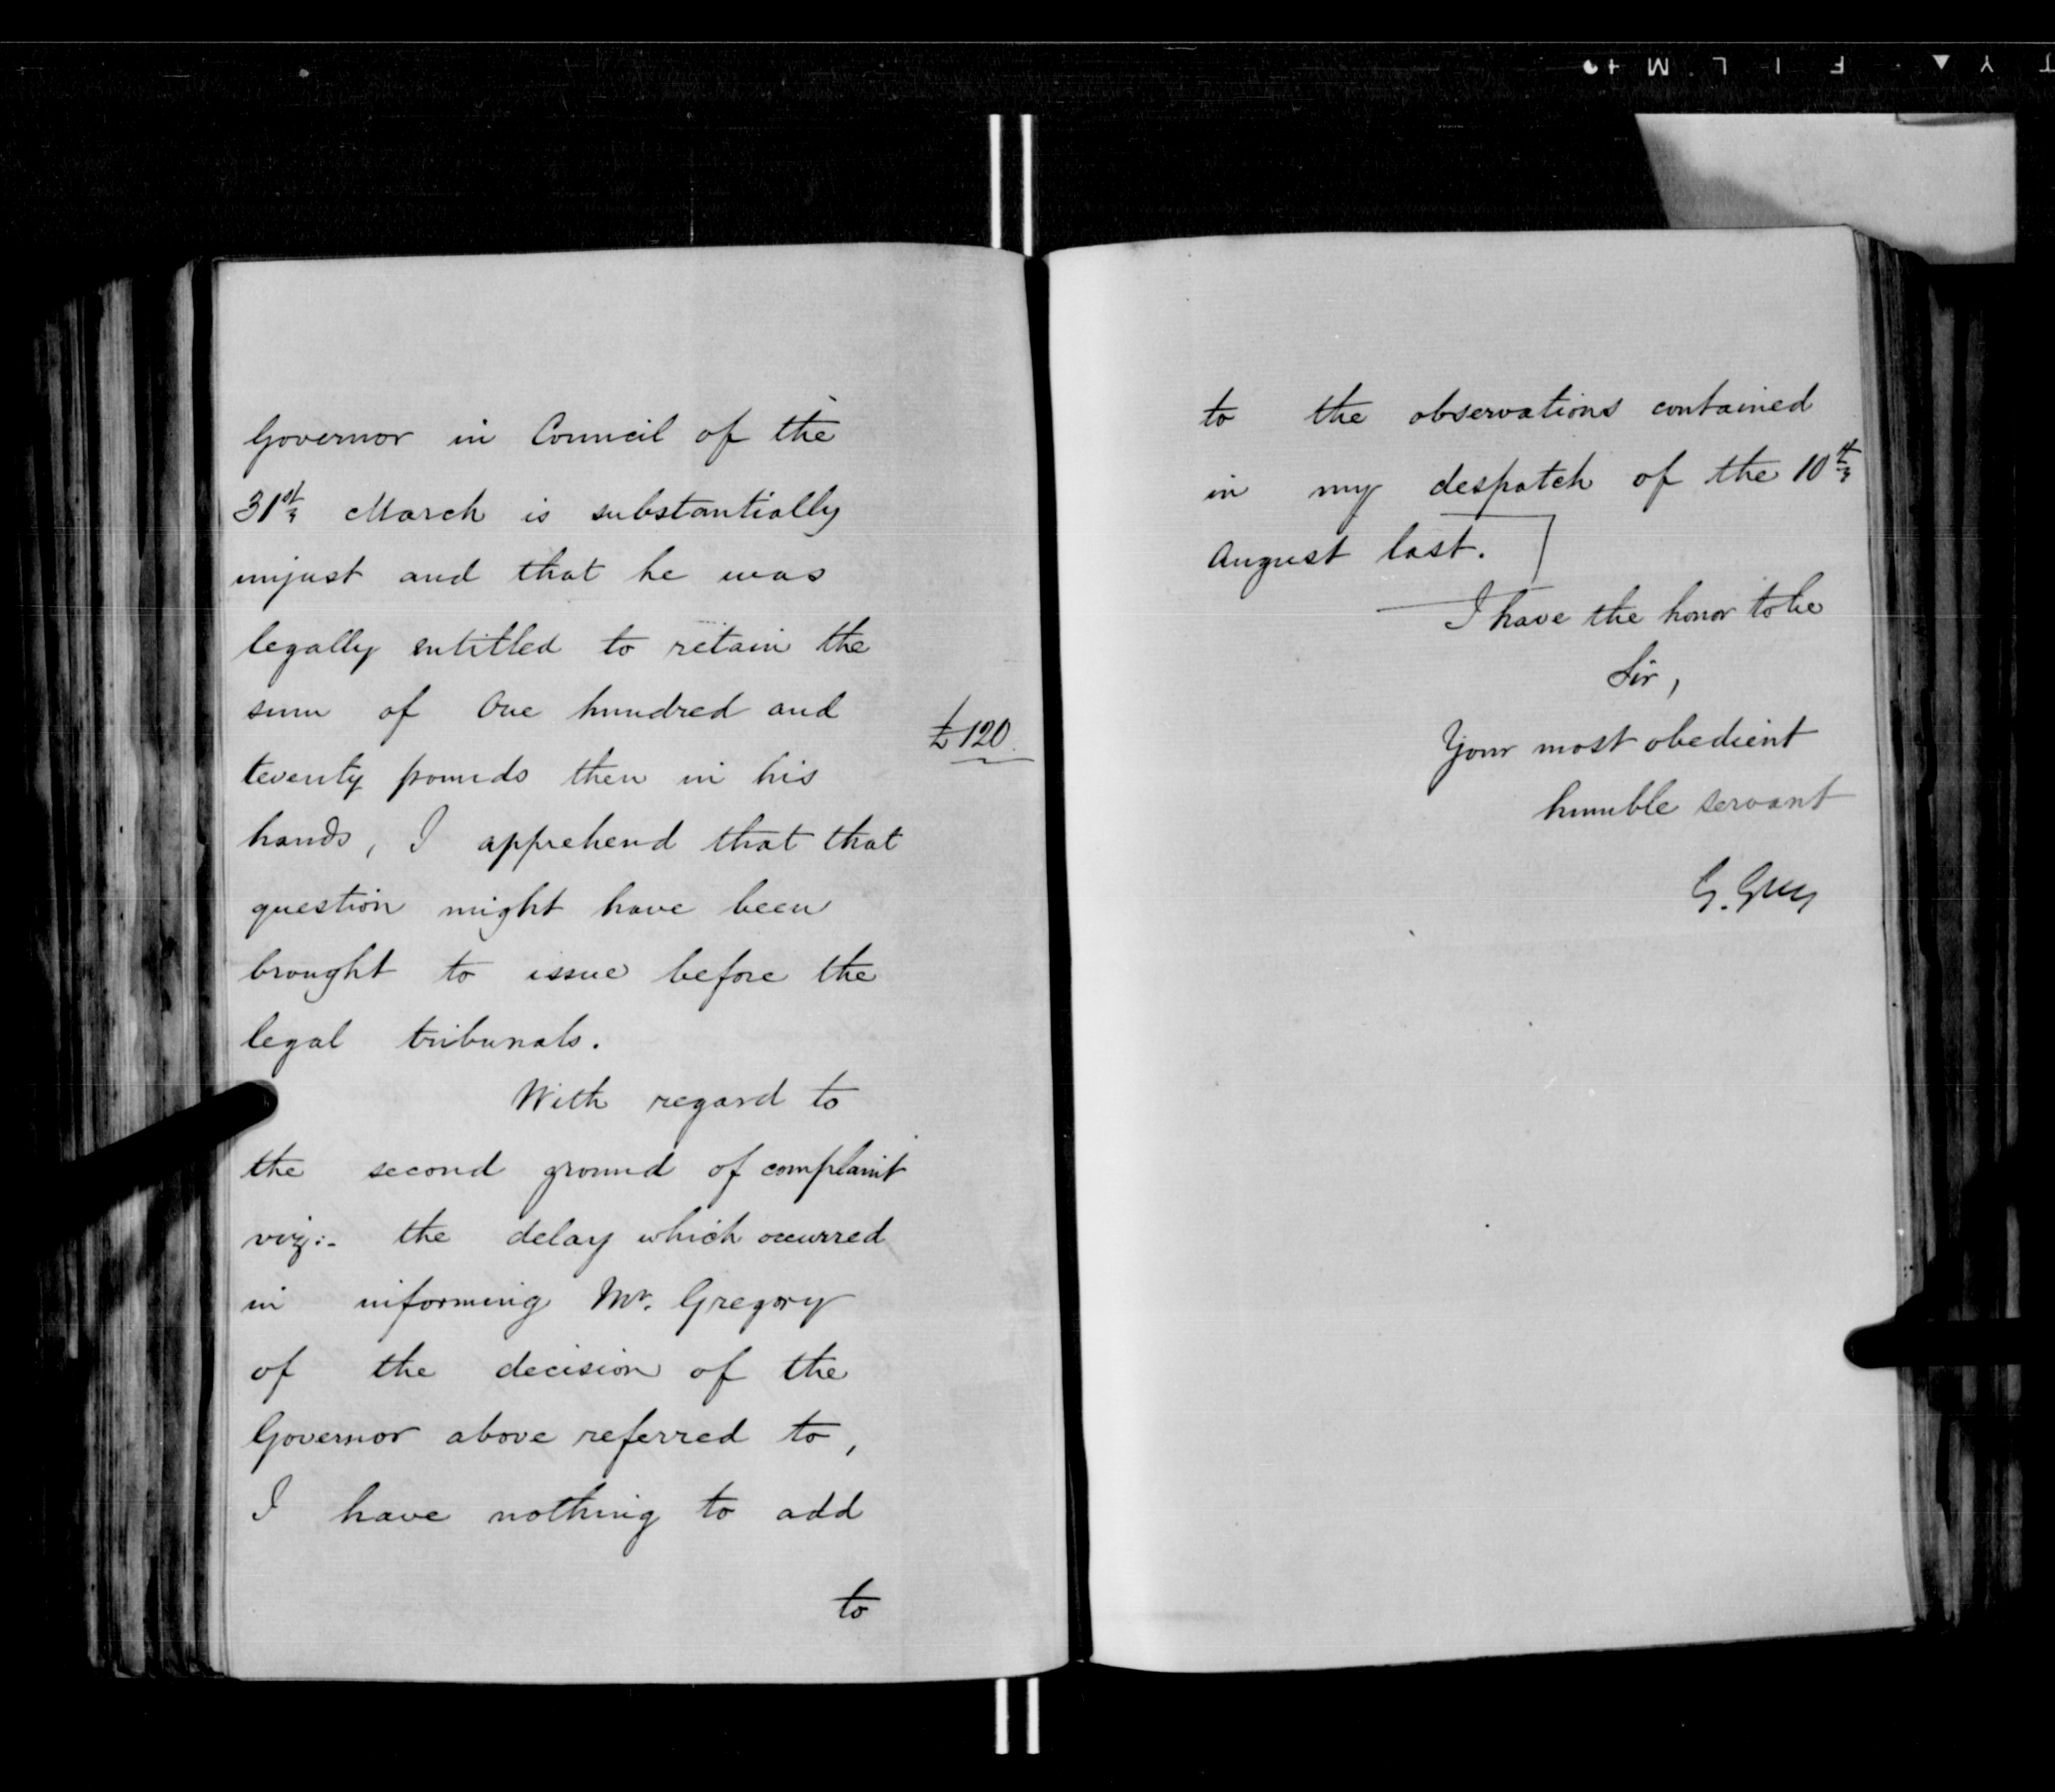 Governor in Council of the
31st March is substantially
unjust and that he was
legally entitled to retain the
sum of One hundred and
twenty pounds then in his
£120
hands, I apprehend that that
question might have been
brought to issue before the
legal tribunals.
With regard to
the second ground of complaint
viz:- the delay which occurred
in informing Mr. Gregory
of the decision of the
Governor above referred to,
I have nothing to add
to
to the observations contained
in my despatch of the 10th
August last.
I have the honor to be
Sir,
Your most obedient
humble servant
G. Grey